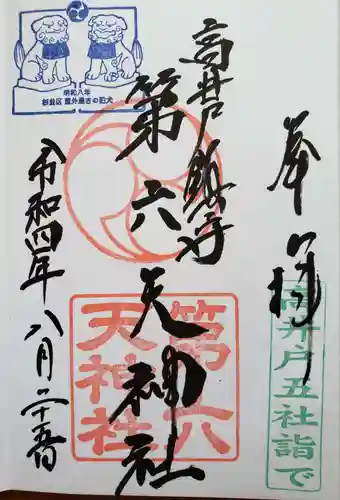 奉拝
高井戸五社詣で
高井戸鎮守
第六天神社
第六
天神社
明和八年
杉並区 最古の狛犬
令和四年八月二十五日